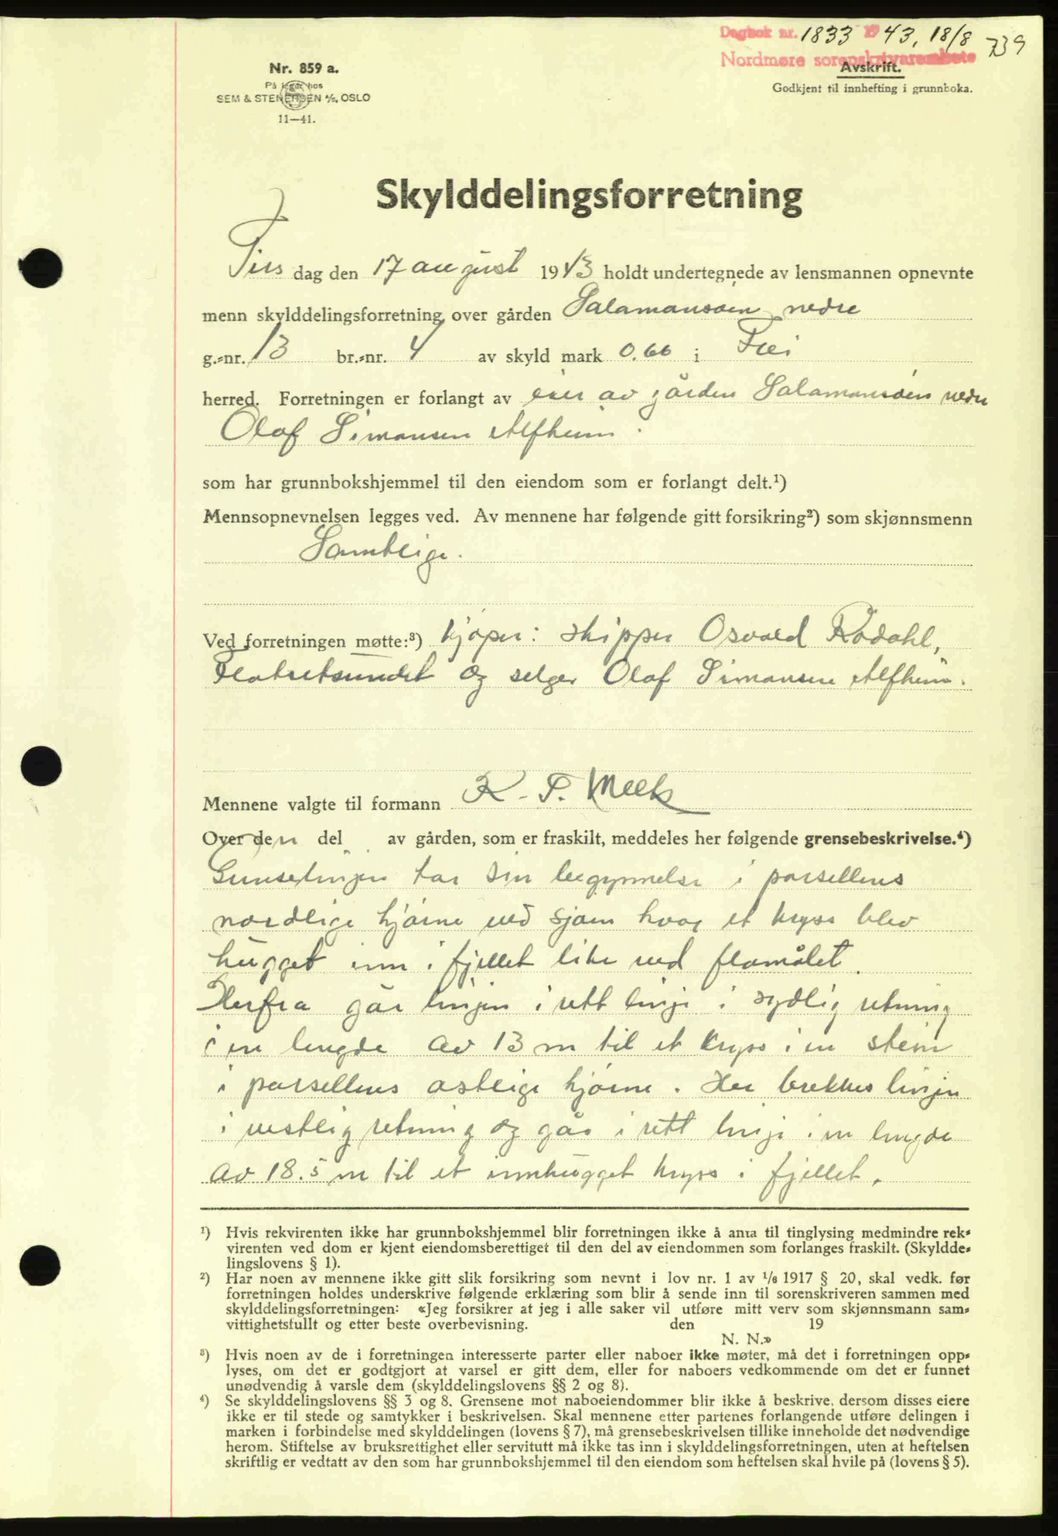 Dagbok nr. 1833 1943, 18/8 739
Nordmøre sorenskriverembete
Nr. 859 a.
På lager hos
SEM & STENERSEN A/S, OSLO
11—41.
Avskrift.
Godkjent til innhefting i grunnboka.
Skylddelingsforretning
Tirs dag den 17 august 1943 holdt undertegnede av lensmannen opnevnte
menn skylddelingsforretning over gården Salamonsøen nedre
g.-nr. 13 br.-nr. 4 av skyld mark 0.66 i Frei
herred. Forretningen er forlangt av eier av gården Salamonsøen nedre
Olaf Simonsen Alfheim.
som har grunnbokshjemmel til den eiendom som er forlangt delt.¹)
Mennsopnevnelsen legges ved. Av mennene har følgende gitt forsikring²) som skjønnsmenn
Samtlige.
Ved forretningen møtte:³) kjøper: skipper Osvald Rødahl,
og selger Olaf Simonsen Alfheim.
Mennene valgte til formann K. P. Meek
Over den del av gården, som er fraskilt, meddeles her følgende grensebeskrivelse.⁴)
Grenselinjen tar sin begynnelse i parsellens
nordlige hjørne ved sjøen hvor et kryss blev
hugget inn i fjellet like ved flomålet.
Herfra går linjen i rett linje i sydlig retning
i en lengde av 13 m til et kryss i en stein
i parsellens østlige hjørne. Her brekkes linjen
i vestlig retning og går i rett linje i en lengde
av 18.5 m til et innhugget kryss i fjellet.
¹) Hvis rekvirenten ikke har grunnbokshjemmel blir forretningen ikke å anta til tinglysing medmindre rek-
virenten ved dom er kjent eiendomsberettiget til den del av eiendommen som forlanges fraskilt. (Skyldde-
lingslovens § 1).
²) Har noen av mennene ikke gitt slik forsikring som nevnt i lov nr. 1 av 1/6 1917 § 20, skal vedk. før
forretningen holdes underskrive følgende erklæring som blir å sende inn til sorenskriveren sammen med
skylddelingsforretningen: «Jeg forsikrer at jeg i alle saker vil utføre mitt verv som skjønnsmann sam-
vittighetsfullt og etter beste overbevisning. den 19
N. N.»
³) Hvis noen av de i forretningen interesserte parter eller naboer ikke møter, må det i forretningen opp-
lyses, om det er godtgjort at varsel er gitt dem, eller for naboers vedkommende om det er funnet
unødvendig å varsle dem (skylddelingslovens §§ 2 og 8).
⁴) Se skylddelingslovens §§ 3 og 8. Grensene mot naboeiendommer blir ikke å beskrive, dersom disses eiere
ikke er til stede og samtykker i beskrivelsen. Skal mennene etter partenes forlangende utføre delingen i
marken i forbindelse med skylddelingen (lovens § 7), må grensebeskrivelsen tillike inneholde det nødvendige
herom. Stiftelse av bruksrettighet eller servitutt må ikke tas inn i skylddelingsforretningen, uten at heftelsen
skriftlig er vedtatt av den som har grunnbokshjemmel til den eiendom som heftelsen skal hvile på (lovens § 5).